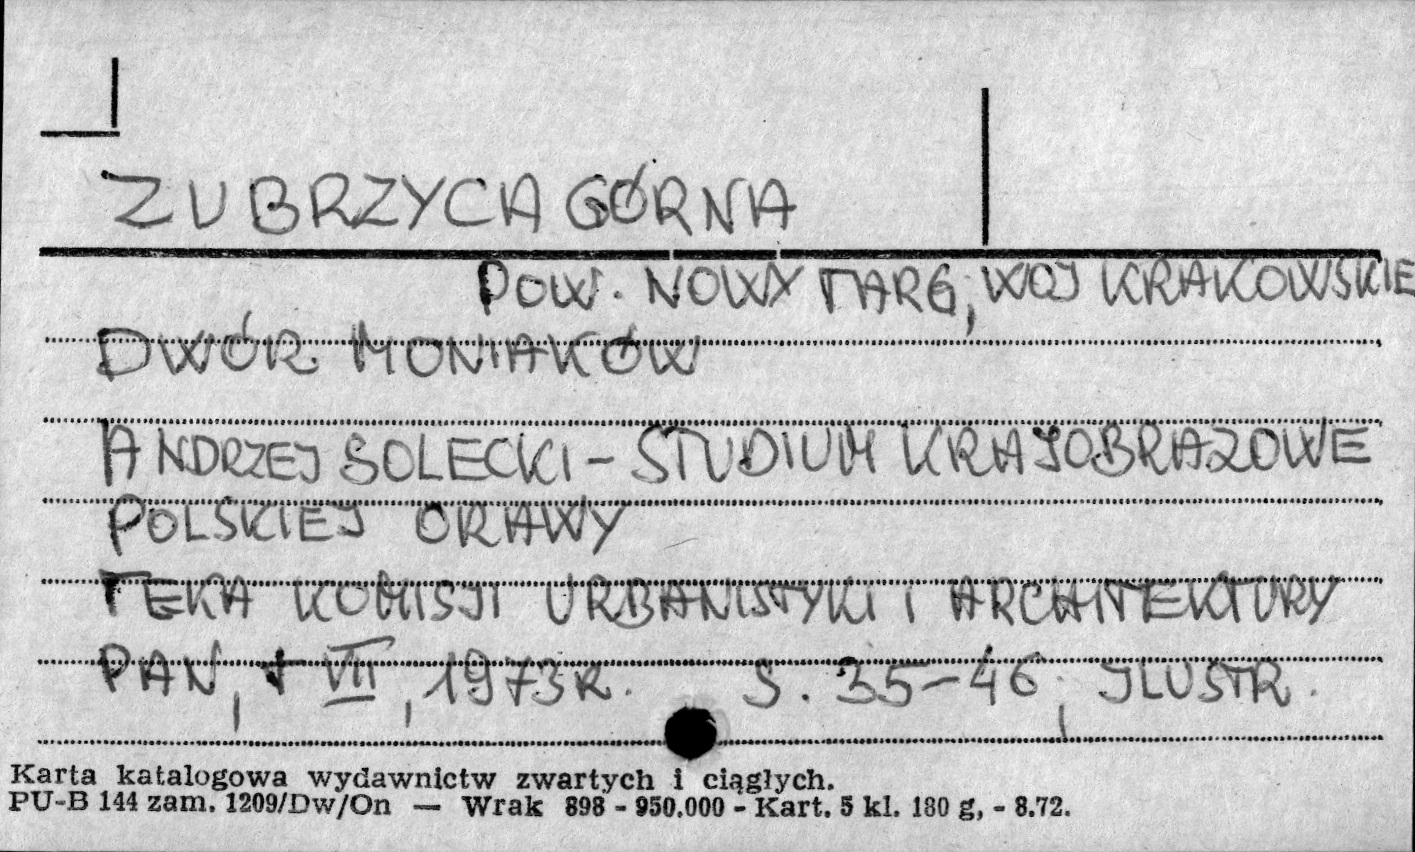 ZUBRZYCA GÓRNA
POW. NOWY TARG, WOJ KRAKOWSKIE
DWÓR MONIAKÓW
ANDRZEJ SOLECKI – STUDIUM KRAJOBRAZOWE
POLSKIEJ ORAWY
TEKA KOMISJI URBANISTYKI I ARCHITEKTURY
PAN, t VII, 1973 R. S. 35–46, ILUSTR.
Karta katalogowa wydawnictw zwartych i ciągłych.
PU-B 144 zam. 1209/Dw/On — Wrak 898 - 950.000 - Kart. 5 kl. 180 g, - 8.72.